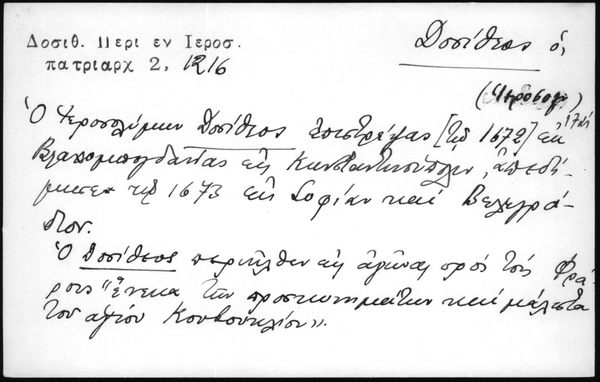 Δοσιθ. Περι εν Ιεροσ.
πατριαρχ 2, 1216
Δοσίθεος ὁ,
(Ἱεροσολ)
Ὁ Ἱεροσολύμων Δοσίθεος ἐπιστρέψας [τῷ 1672] ἐκ
Βλαχομπογδανίας εἰς Κωνσταντινούπολιν, ἀπεδή-
μησε τῷ 1673 εἰς Σοφίαν καὶ Βελιγρά-
διον.
Ὁ Δοσίθεος περιῆλθεν εἰς ἀγῶνας πρὸς τοὺς Φρά-
ρους "ἕνεκα τῶν προσκυνημάτων καὶ μάλιστα
τοῦ ἁγίου Κουβουκλίου".